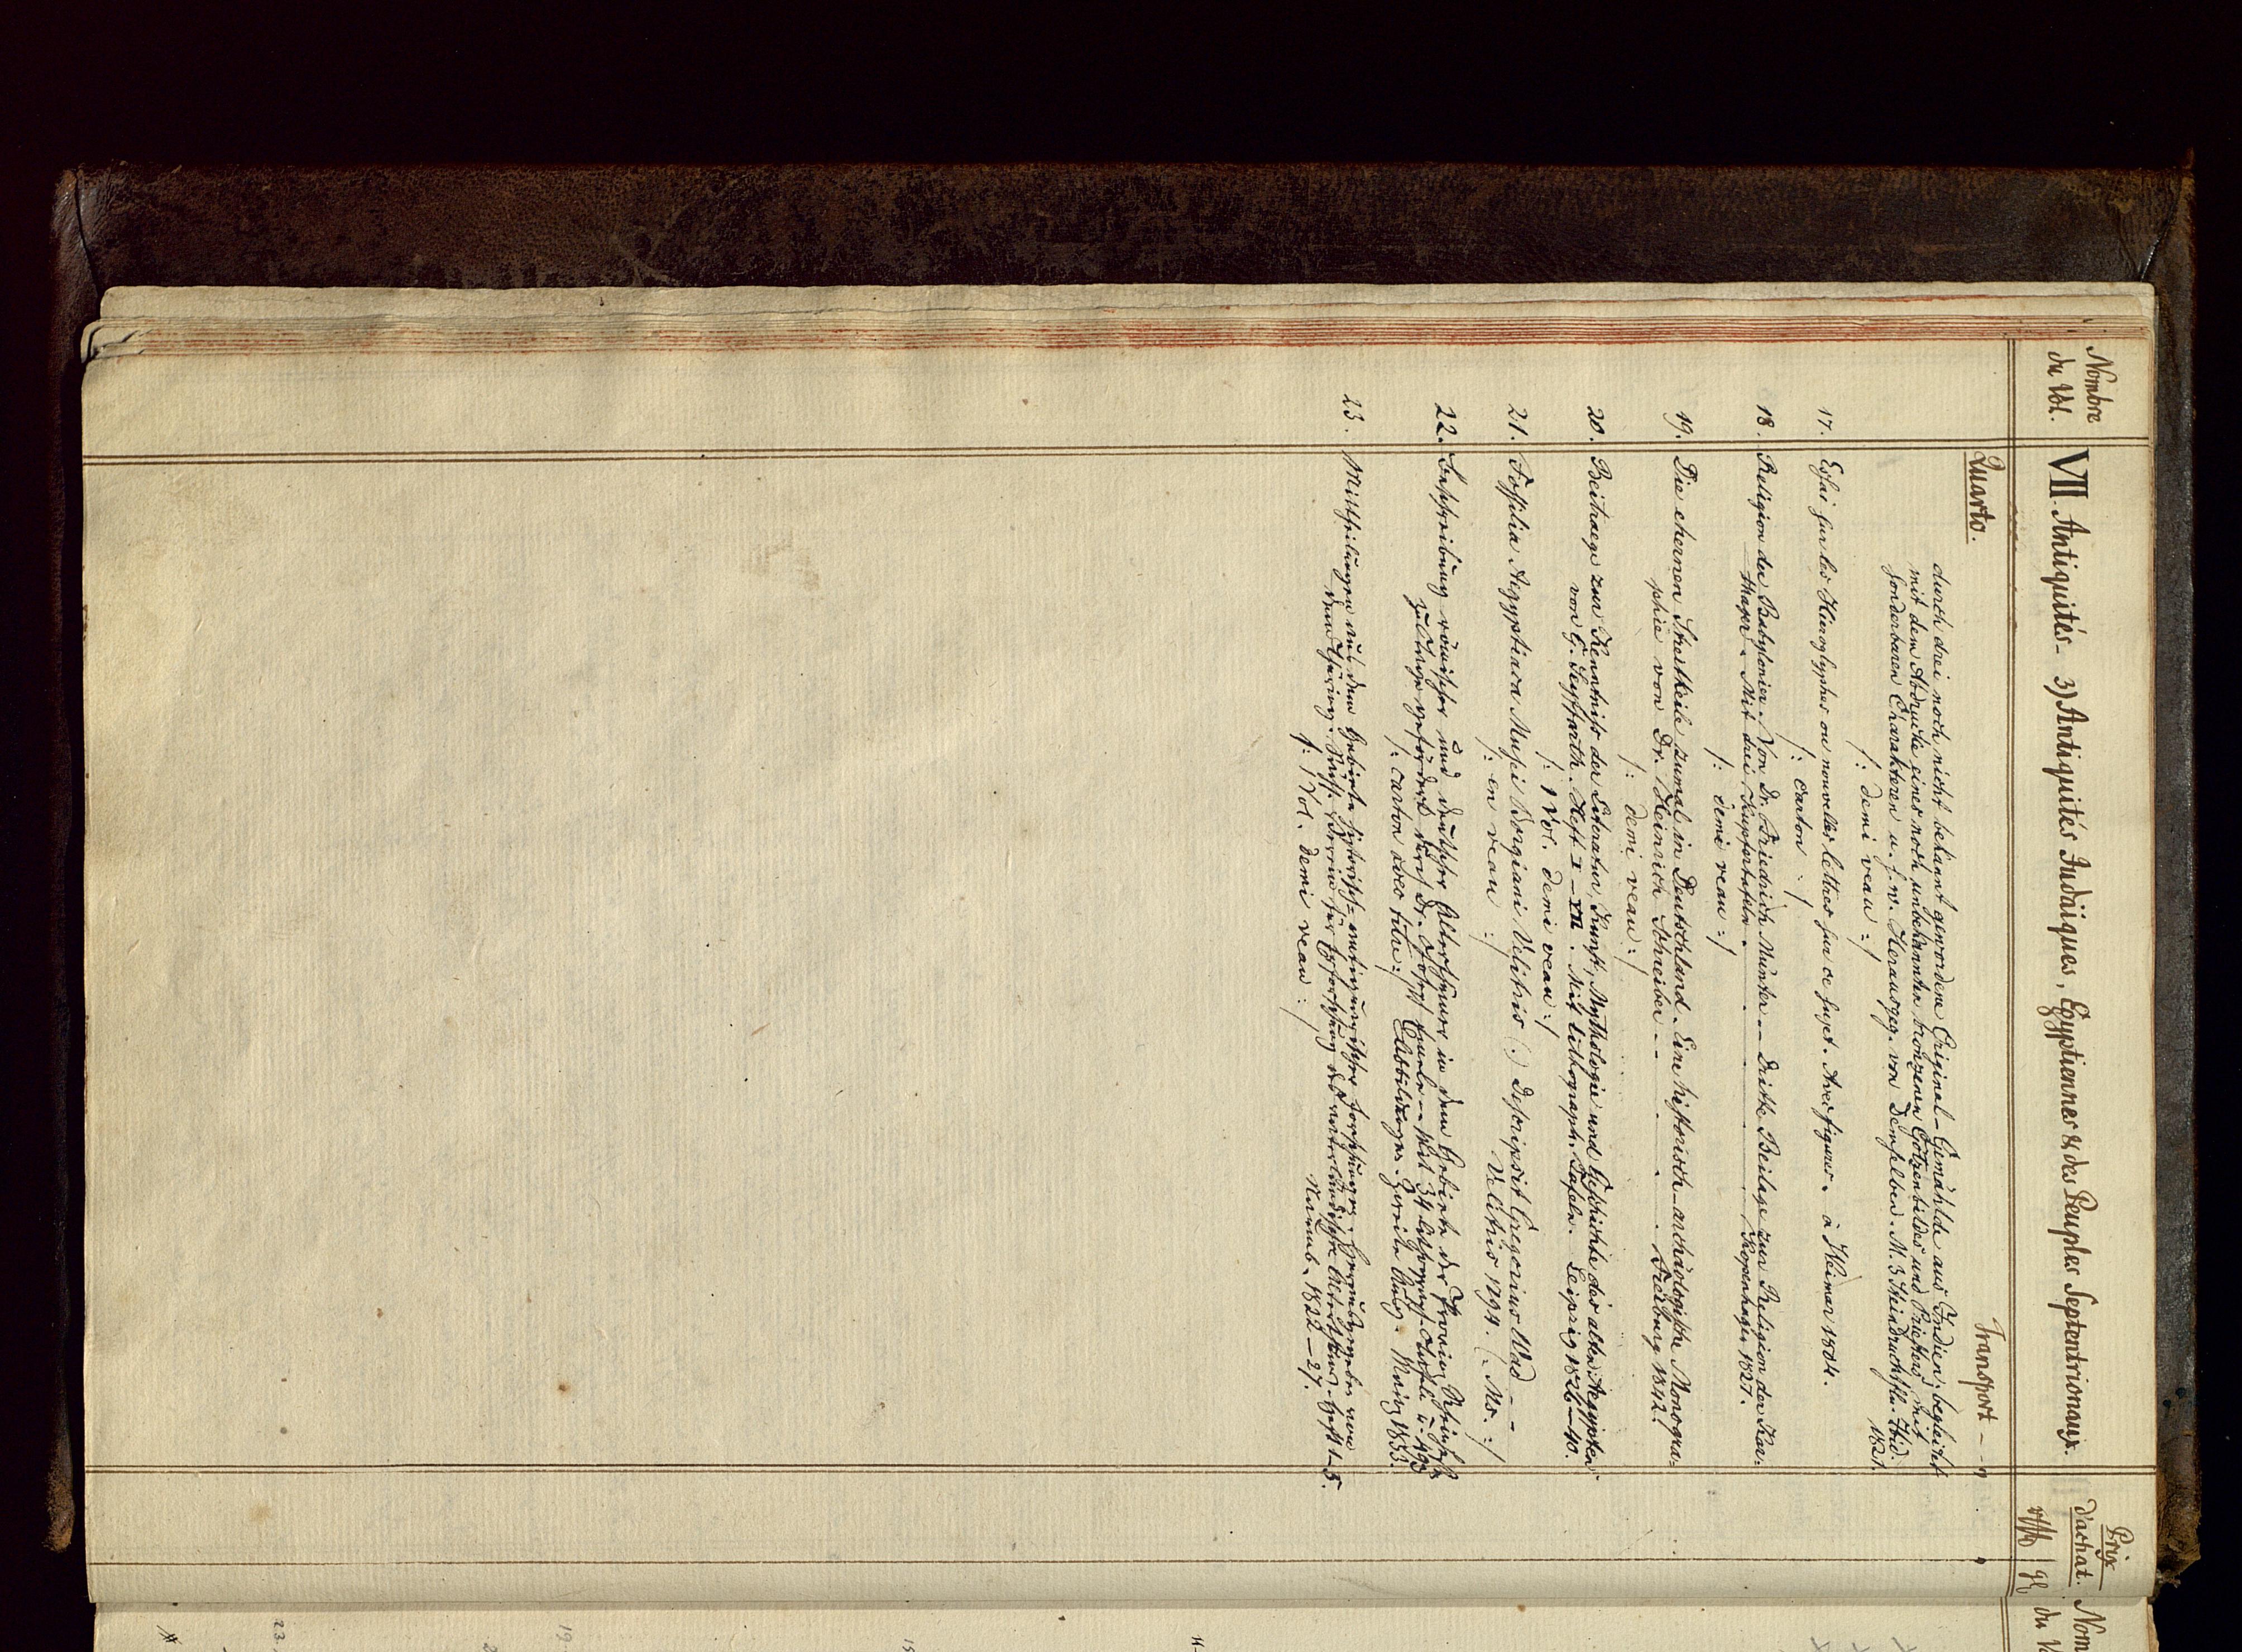 Nombre du Vol.
VII. Antiquités _ 3) Antiquités Judäiques, Egyptiennes & des Peuples Septentrionaux.
Prix d'achat.
Quarto.
Transport _ _ "
durch drei noch nicht bekant gewordene Original-Gemählde aus Indien; begleitet
mit dem Abdrucke eines noch unbekannten bronzenen Götzenbildes und Priesters mit
sonderbaren Charakteren u. s. w. Herausgeg. von Demselben. M. 3 Steindrucktfln. Ibid.
1821.
/: demi veau :/
17. Essai sur les Hieroglyphes ou nouvelles lettres sur ce sujet. Avec figures. à Weimar 1804.
/: carton :/
18. Religion der Babylonier. Von Dr. Friedrich Münter _ _ Dritte Beilage zur Religion der Kar-
thager. Mit drei Kupfertafeln. . . . Kopenhagen 1827.
/: demi veau :/
19. Die ehernen Streitkeile zumal in Deutschland. Eine historisch-archäologische Monogra-
phie von Dr. Heinrich Schreiber _ _ . . . Freiburg 1842.
/: demi veau :/
20. Beitraege zur Kenntniss der Literatur, Kunst, Mythologie und Geschichte des alten Aegypten
von G. Seyffarth. Heft I–VII. Mit lithograph. Tafeln. Leipzig 1826–40.
/: 1 Vol. demi veau :/
21. Fossilia Aegyptiaca Musei Borgiani Velitris (:) descripsit Gregorius Wad _ _
Velitris 1794. (: Ms. :/
/: en veau :/
22. Beschreibung römischer und deutscher Alterthümer in dem Gebiete der Provinz Rheinhessen
zu Tage gefördert durch Dr. Joseph Emele _ _ Mit 34 lithograph. Tafeln u. 490
Abbildungen. Zweite Ausg. Mainz 1833.
/: carton avec titre :/
23. Mittheilungen aus dem Gebiete historisch-antiquarischer Forschungen. Herausgegeben von
dem Thüring. Sächs. Verein für Erforschung des vaterländischen Alterthums. Heft 1–5.
Naumb. 1822–27.
/: 1 Vol. demi veau :/